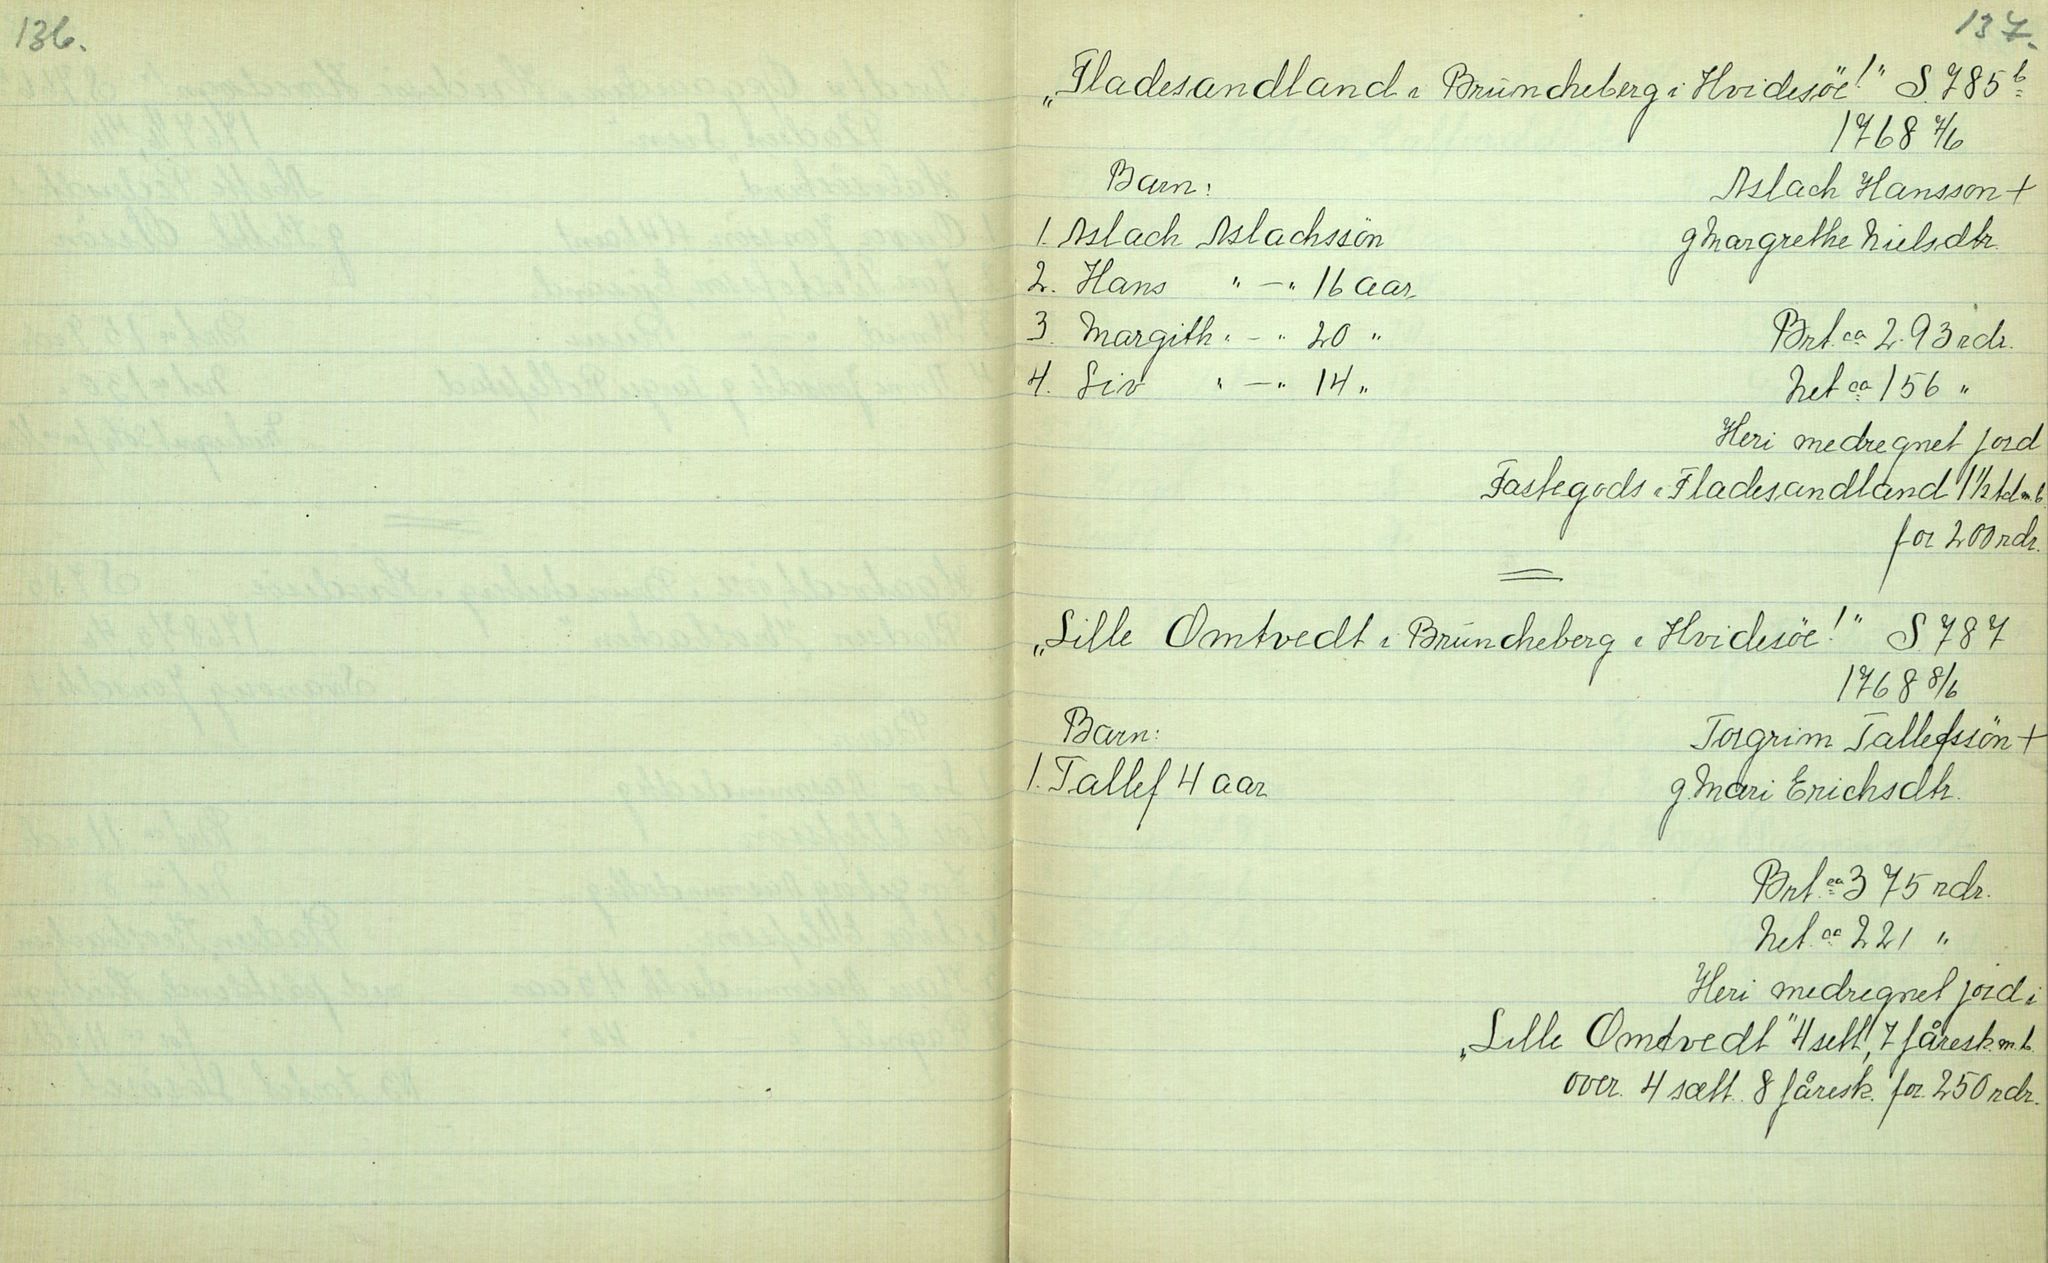 136.
137.
„Fladesandland i Brüncheberg i Hvidesöe!" S. 785 b
1768 7/6
Barn:
Aslach Hansson +
1. Aslach Aslachssön
g Margrethe Nielsdtr.
2. Hans " — " 16 aar
3. Margith " — " 20 "
Brt. ca 293 rdr.
4. Liv " — " 14 "
Net ca 156 "
Heri medregnet jord
Fastegods i Fladesandland 1 1/2 td m.b.
for 200 rdr.
„Lille Omtvedt i Brüncheberg i Hvidesöe!" S. 787
1768 8/6
Barn:
Torgrim Tallefssön +
1. Tallef 4 aar
g. Mari Erichsdtr.
Brt. ca 375 rdr.
Net. ca 221 "
Heri medregnet jord i
„Lille Omtvedt" 4 sett, 7 fåresk. m.b.
over. 4 sætt. 8 fåresk. for 250 rdr.